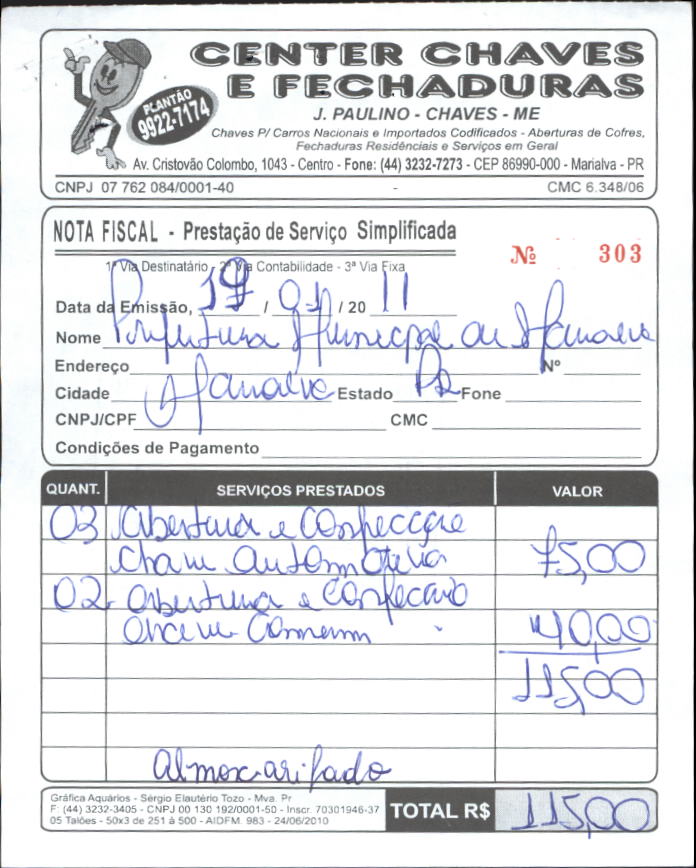 CENTER CHAVES
E FECHADURAS
PLANTÃO
9922-7174
J. PAULINO - CHAVES - ME
Chaves P/ Carros Nacionais e Importados Codificados - Aberturas de Cofres,
Fechaduras Residênciais e Serviços em Geral
Av. Cristovão Colombo, 1043 - Centro - Fone: (44) 3232-7273 - CEP 86990-000 - Marialva - PR
CNPJ 07 762 084/0001-40 - CMC 6.348/06
NOTA FISCAL - Prestação de Serviço Simplificada
Nº 303
1ª Via Destinatário - 2ª Via Contabilidade - 3ª Via Fixa
Data da Emissão, 19 / 01 / 20 11
Nome Prefeitura Municipal de Marialva
Endereço Nº
Cidade Marialva Estado PR Fone
CNPJ/CPF CMC
Condições de Pagamento
QUANT. SERVIÇOS PRESTADOS VALOR
03 Abertura e Confecção
chave automotiva 75,00
02 Abertura e Confecção
chave 40,00
115,00
Almoxarifado
Gráfica Aquários - Sérgio Elautério Tozo - Mva. Pr
F: (44) 3232-3405 - CNPJ 00 130 192/0001-50 - Inscr. 70301946-37
05 Talões - 50x3 de 251 à 500 - AIDFM. 983 - 24/06/2010
TOTAL R$ 115,00